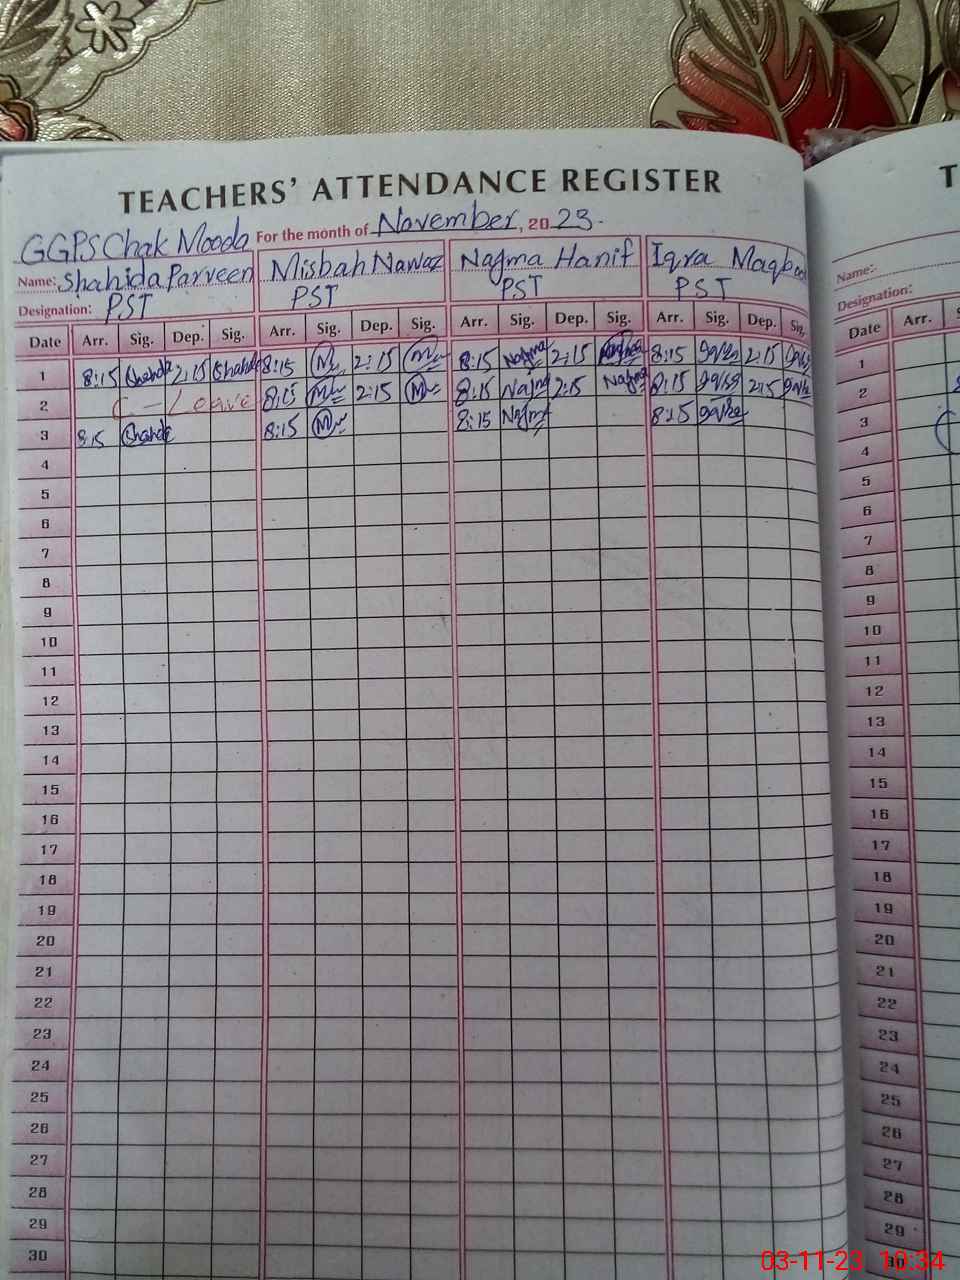 TEACHERS' ATTENDANCE REGISTER
GGPS Chak Mooda For the month of November, 2023.
Name: Shahida Parveen Misbah Nawaz Najma Hanif Iqra Maqbool
Designation: PST PST PST PST
Date Arr. Sig. Dep. Sig. Arr. Sig. Dep. Sig. Arr. Sig. Dep. Sig. Arr. Sig. Dep. Sig.
1 8:15 Shahida 2:15 Shahida 8:15 M 2:15 M 8:15 Najma 2:15 8:15 Iqra 2:15 Iqra
2 C-Leave 8:15 M 2:15 M 8:15 Najma 2:15 Najma 8:15 Iqra 2:15 Iqra
3 8:15 Shahida 8:15 M 8:15 Najma 8:15 Iqra
4
5
6
7
8
9
10
11
12
13
14
15
16
17
18
19
20
21
22
23
24
25
26
27
28
29
30
T
Name:-
Designation:
Date Arr. S
1
2
3
4
5
6
7
8
9
10
11
12
13
14
15
16
17
18
19
20
21
22
23
24
25
26
27
28
29
30
03-11-23 10:34